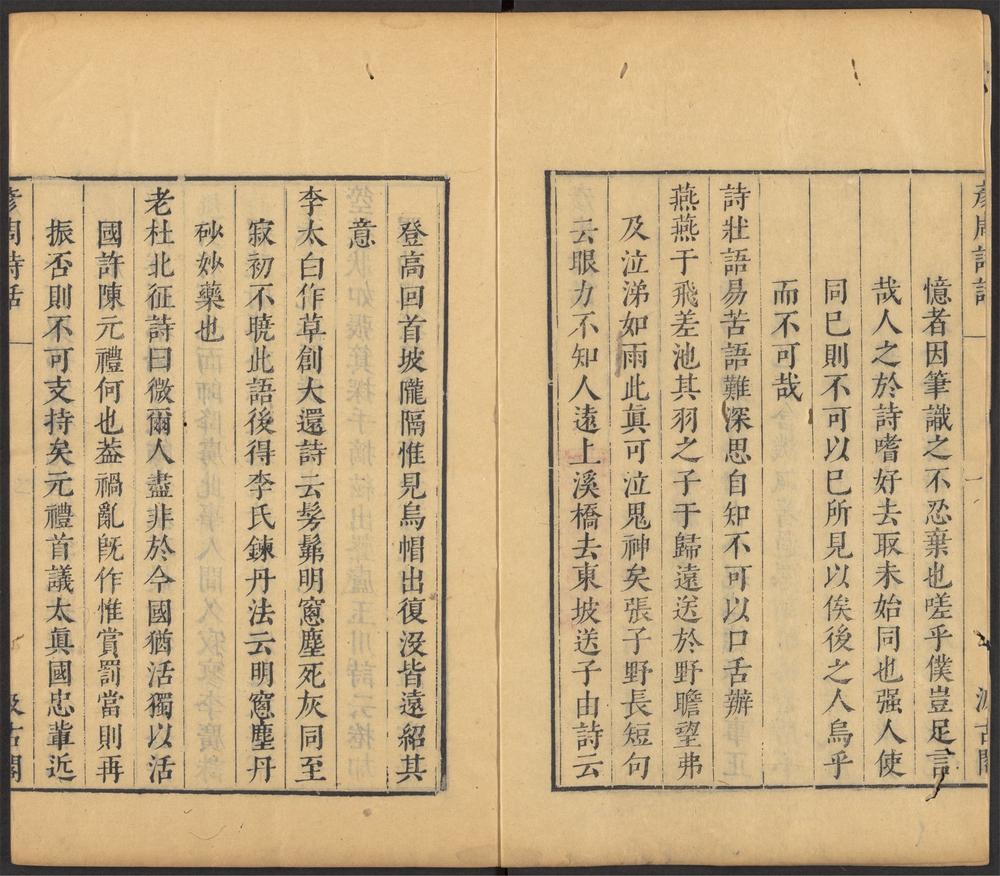 彥周詩話
汲古閣
憶者因筆識之不忍棄也嗟乎僕豈足言
哉人之於詩嗜好去取未始同也强人使
同已則不可以已所見以俟後之人烏乎
而不可哉
詩壯語易苦語難深思自知不可以口舌辦
燕燕于飛差池其羽之子于歸遠送於野瞻望弗
及泣涕如雨此眞可泣鬼神矣張子野長短句
云眼力不知人遠上溪橋去東坡送子由詩云
登高回首坡隴隔惟見烏帽出復沒皆遠紹其
意
李太白作草創大還詩云髣髴明窻塵死灰同至
寂初不曉此語後得李氏鍊丹法云明窻塵丹
砂妙藥也
老杜北征詩曰微爾人盡非於今國猶活獨以活
國許陳元禮何也葢禍亂旣作惟賞罰當則再
振否則不可支持矣元禮首議太眞國忠輩近
彥周詩話
汲古閣